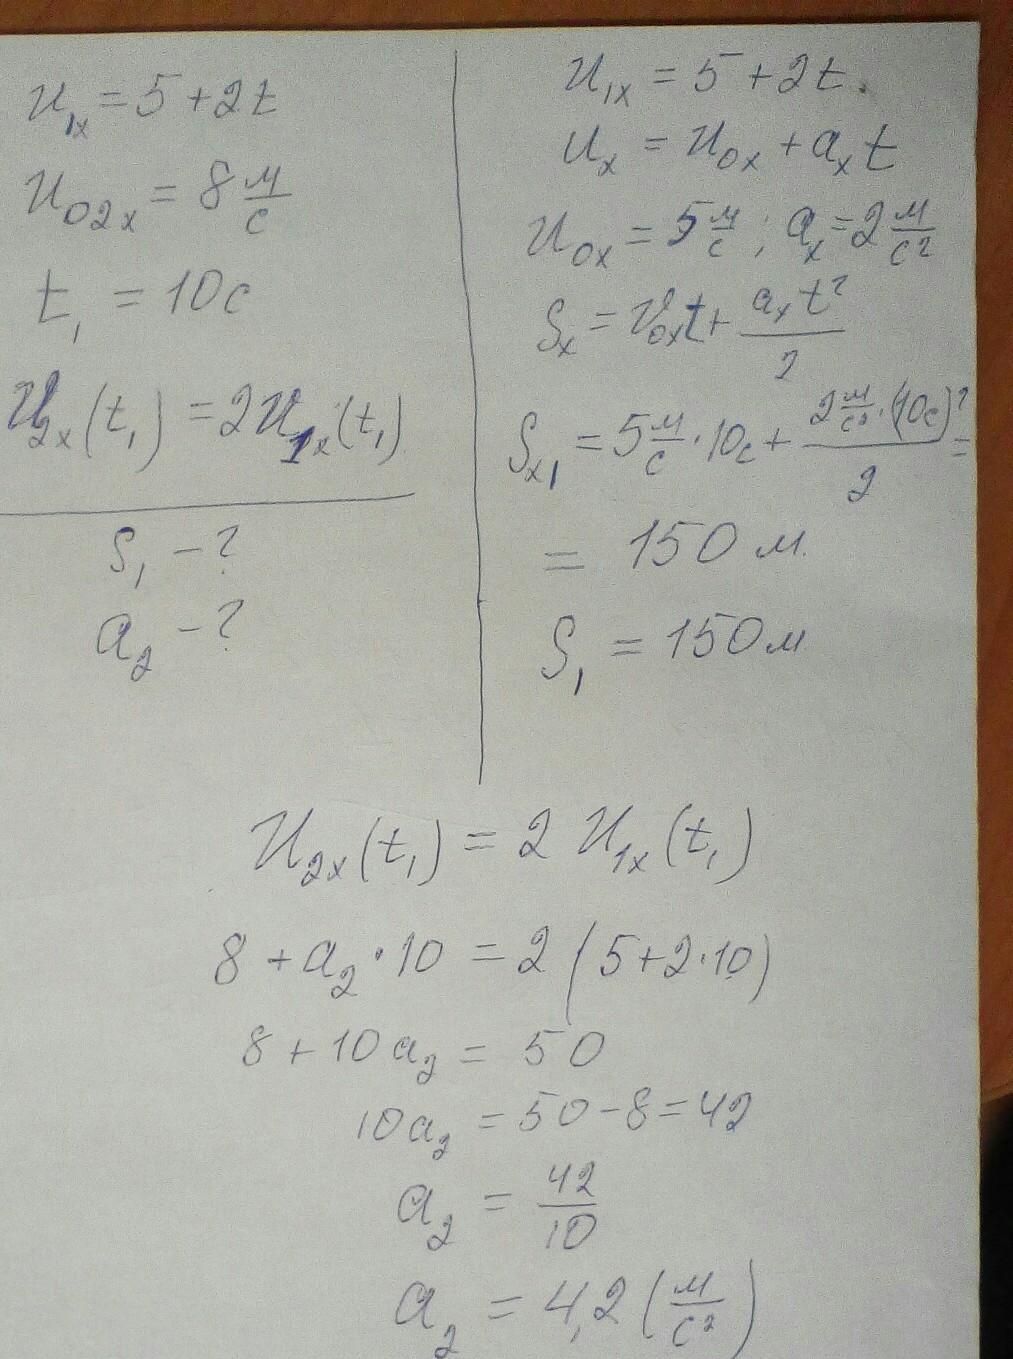 υ₁ₓ = 5 + 2t
υ₀₂ₓ = 8 м/с
t₁ = 10с
υ₂ₓ(t₁) = 2υ₁ₓ(t₁)
S₁ - ?
a₂ - ?
υ₁ₓ = 5 + 2t.
υₓ = υ₀ₓ + aₓt
υ₀ₓ = 5 м/с ; aₓ = 2 м/с²
Sₓ = υ₀ₓt + aₓt²/2
Sₓ₁ = 5 м/с · 10с + 2 м/с² · (10с)²/2 =
= 150 м.
S₁ = 150м
υ₂ₓ(t₁) = 2 υ₁ₓ(t₁)
8 + a₂ · 10 = 2 (5 + 2·10)
8 + 10a₂ = 50
10a₂ = 50 - 8 = 42
a₂ = 42/10
a₂ = 4,2 (м/с²)